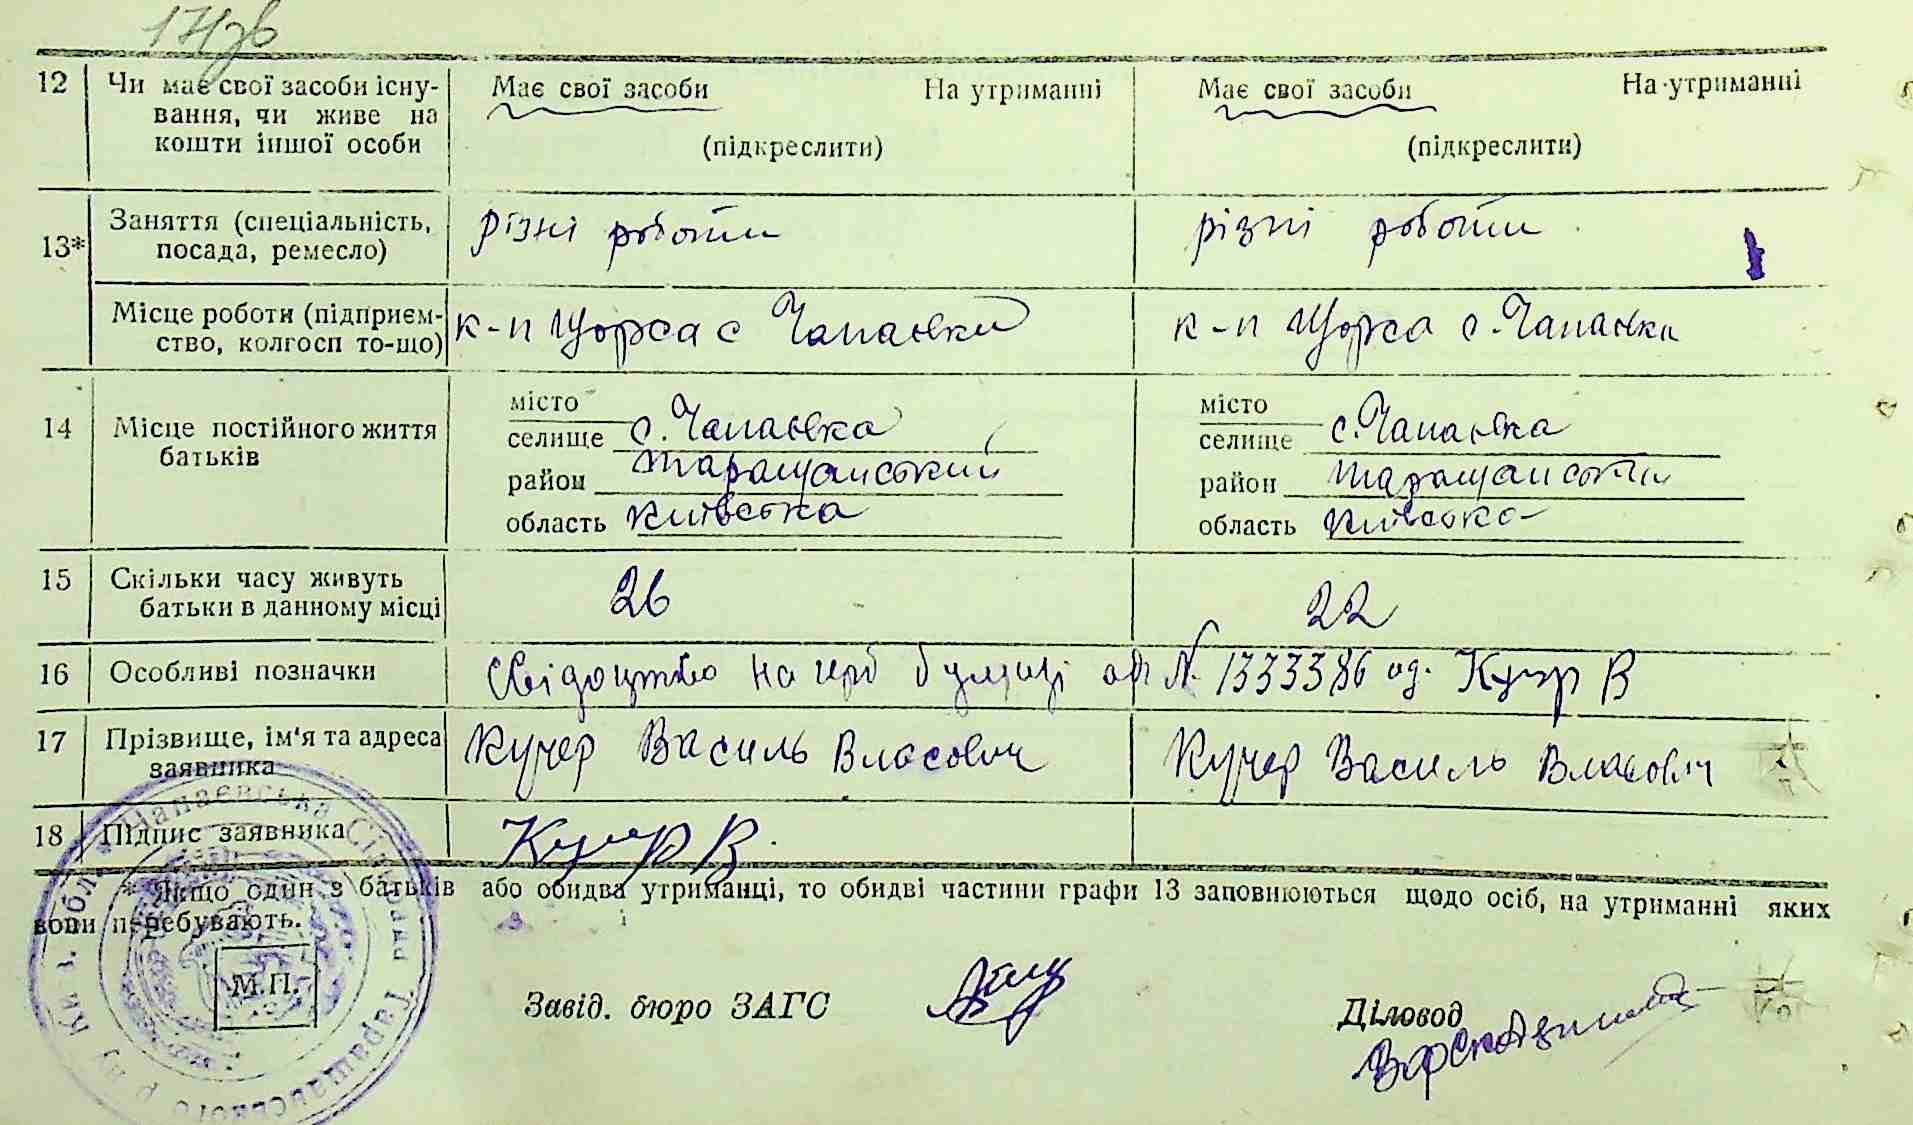 12 Чи має свої засоби існу- Має свої засоби На утриманні Має свої засоби На утриманні
вання, чи живе на
кошти іншої особи (підкреслити) (підкреслити)
13* Заняття (спеціальність, різні роботи різні роботи
посада, ремесло)
Місце роботи (підприєм- к-п Щорса с Чапаєвки к-п Щорса с. Чапаєвки
ство, колгосп то-що)
місто місто
14 Місце постійного життя селище с. Чапаєвка селище с. Чапаєвка
батьків район Таращанський район Таращанський
область Київська область Київська
15 Скільки часу живуть 26 22
батьки в данному місці
16 Особливі позначки Свідоцтво на герб бумазі № 1333386 од. Кучер В
17 Прізвище, ім'я та адреса Кучер Василь Власович Кучер Василь Власович
заявника
18 Підпис заявника Кучер В.
* Якщо один з батьків або обидва утриманці, то обидві частини графи 13 заповнюються щодо осіб, на утриманні яких
вони перебувають.
М.П.
Завід. бюро ЗАГС Діловод
Чапаєвська Сільська Рада Таращанського р-ну Київ. обл.